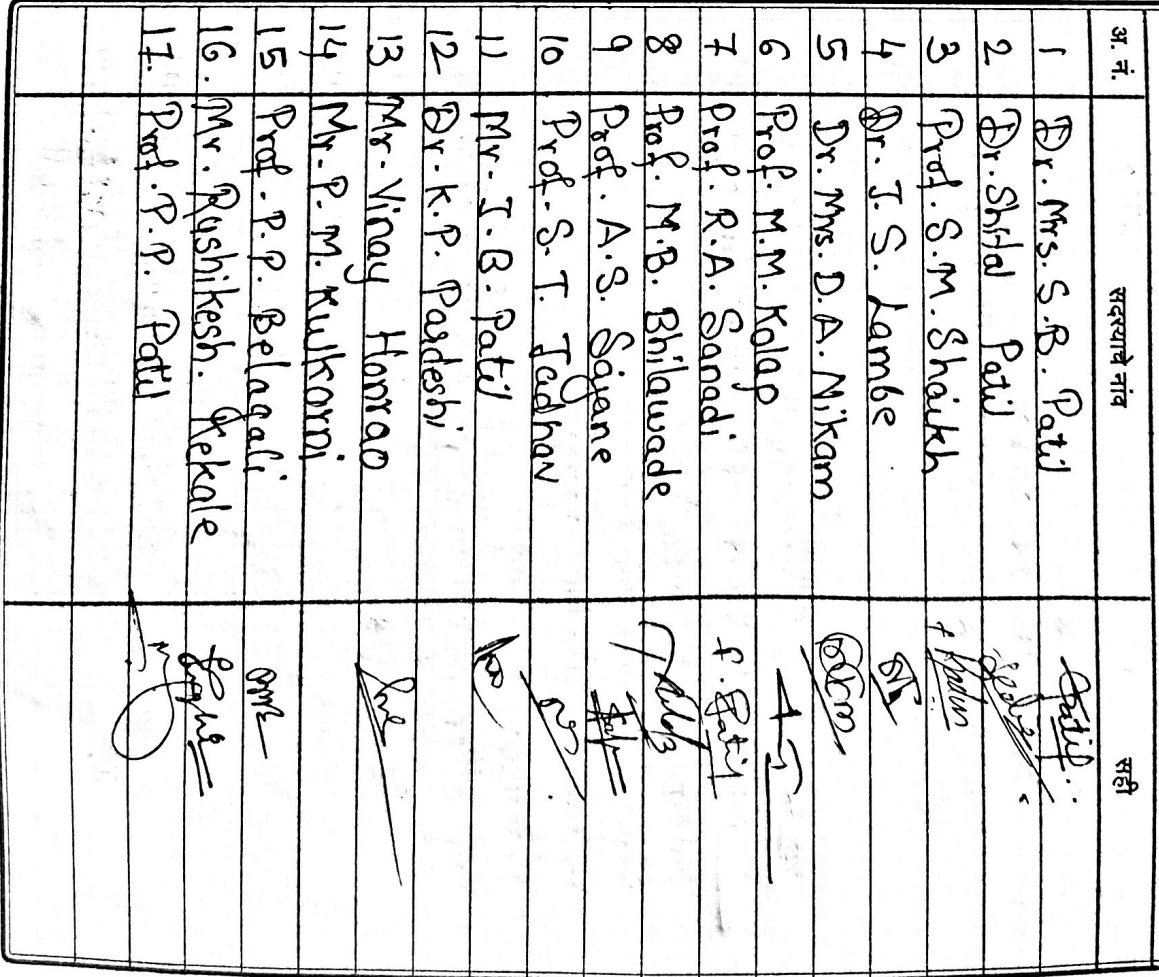 अ. नं. सदस्याचे नांव सही
1 Dr. Mrs. S.B. Patil
2 Dr. Shital Patil
3 Prof. S.M. Shaikh
4 Dr. J.S. Lambe
5 Dr. Mrs. D.A. Nikam
6 Prof. M.M. Kalap
7 Prof. R.A. Sanadi
8 Prof. M.B. Bhilawade
9 Prof. A.S. Sajane
10 Prof. S.T. Jadhav
11 Mr. I.B. Patil
12 Dr. K.P. Pardeshi
13 Mr. Vinay Honrao
14 Mr. P.M. Kulkarni
15 Prof. P.P. Belagali
16. Mr. Rushikesh. Kekale
17. Prof. P.P. Patil